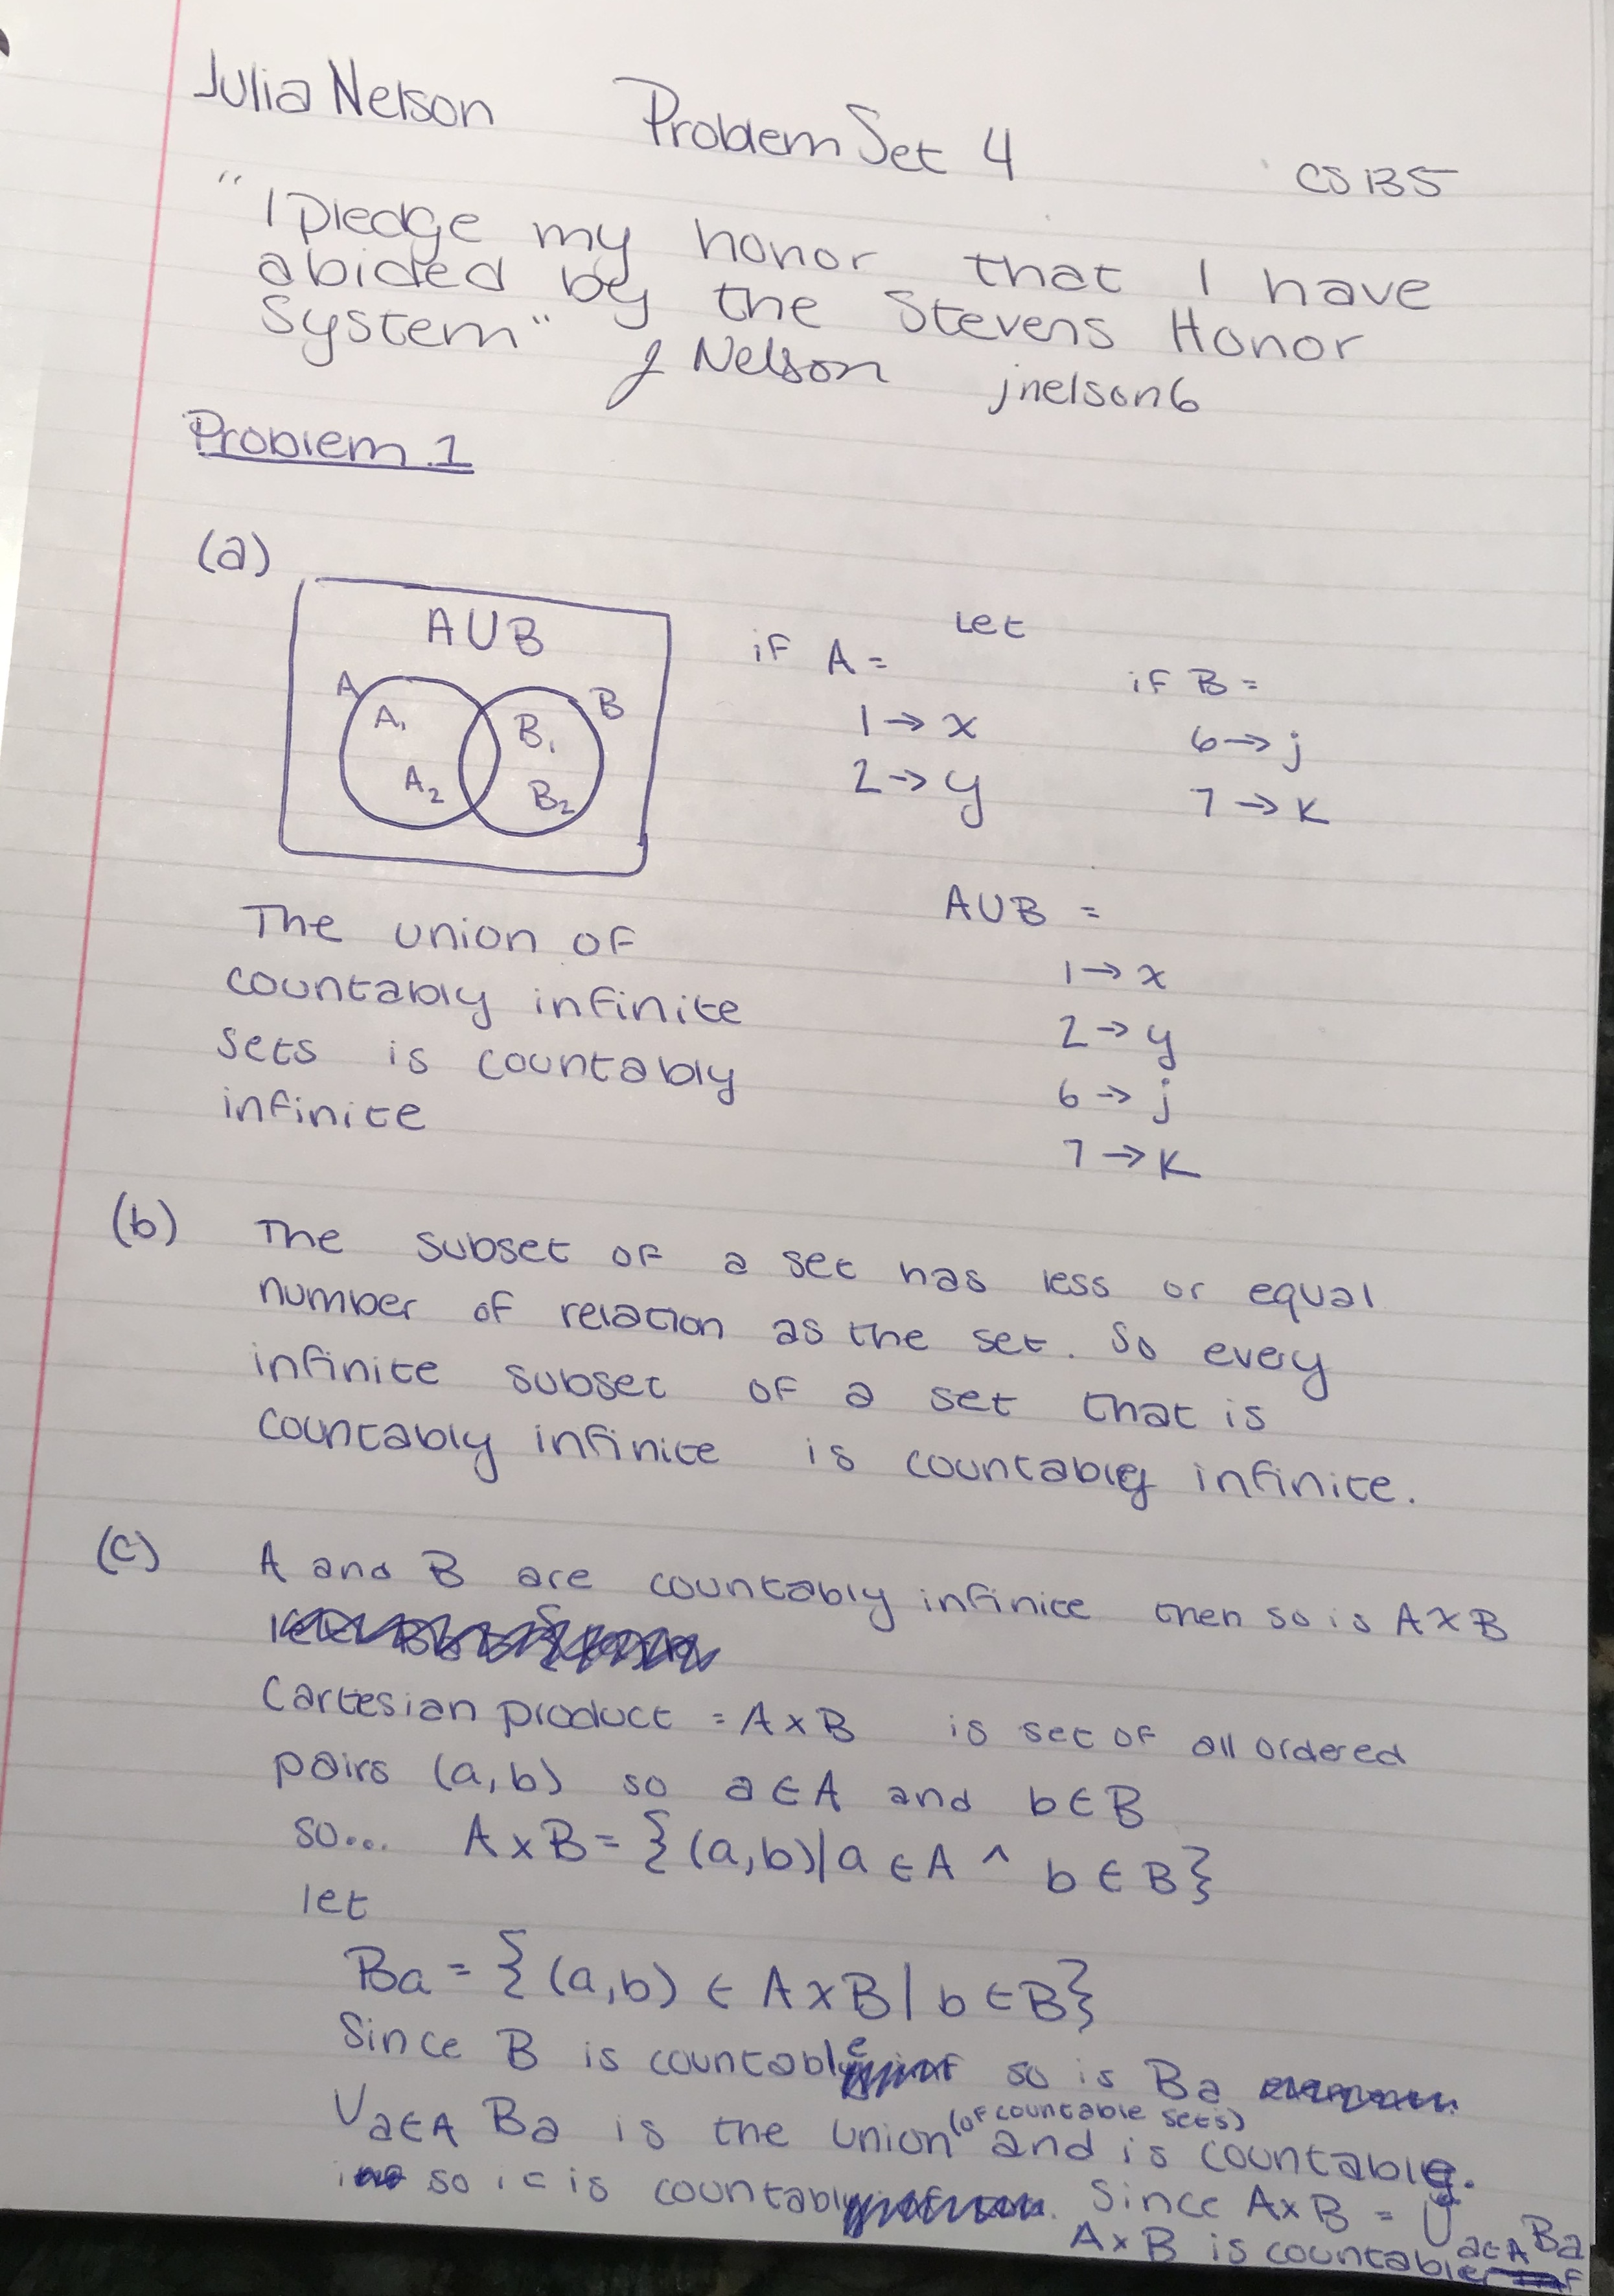 Julia Nelson Problem Set 4 CS 135
"I pledge my honor that I have
abided by the Stevens Honor
System" J Nelson jnelson6
Problem 1
(a)
A∪B
A B
A₁ B₁
A₂ B₂
Let
if A = if B =
1 → x 6 → j
2 → y 7 → K
A∪B =
1 → x
2 → y
6 → j
7 → K
The union of
countably infinite
sets is countably
infinite
(b) The subset of a set has less or equal
number of relation as the set. So every
infinite subset of a set that is
countably infinite is countably infinite.
(c) A and B are countably infinite then so is A×B
Cartesian product = A×B is set of all ordered
pairs (a,b) so a∈A and b∈B
so... A×B = {(a,b)|a∈A ^ b∈B}
let
Ba = {(a,b) ∈ A×B | b∈B}
Since B is countable so is Ba
∪a∈A Ba is the union (of countable sets) and is countable.
so it is countably. Since A×B = ∪a∈A Ba
A×B is countable